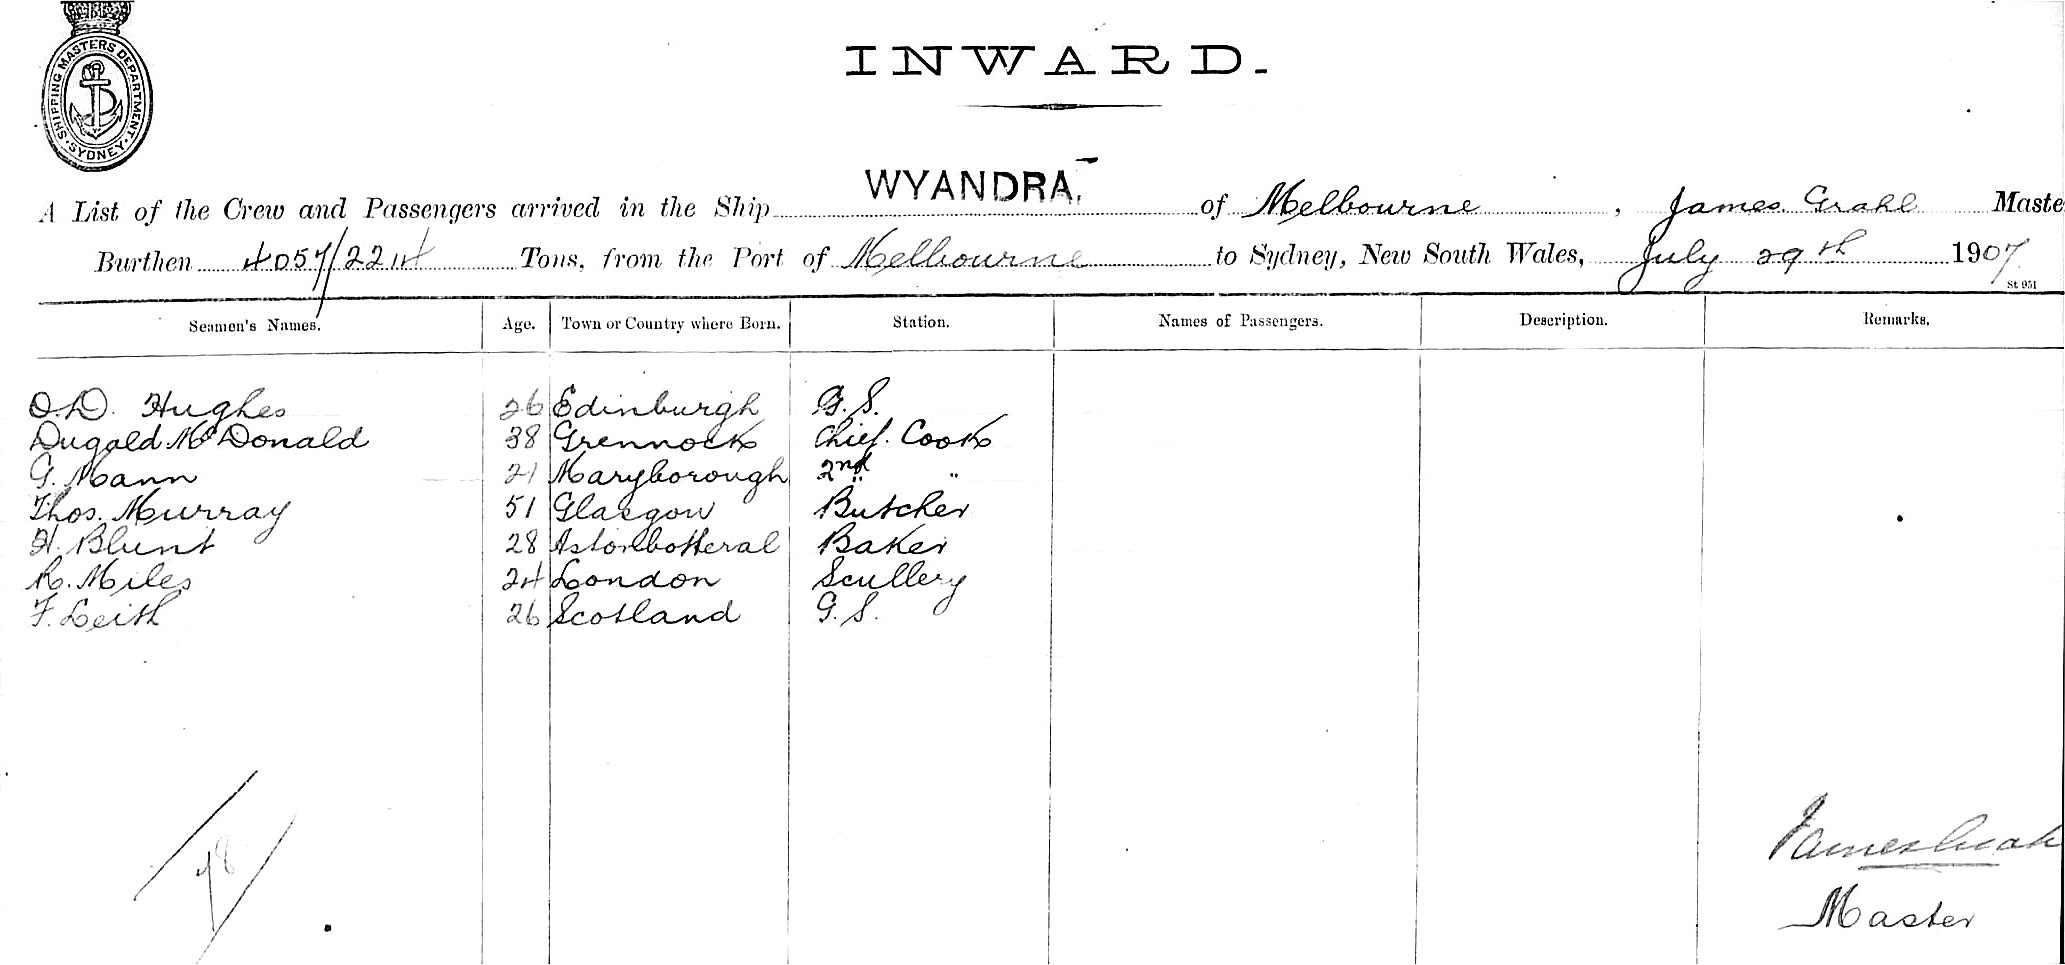 SHIPPING MASTERS DEPARTMENT. SYDNEY.
INWARD.
A List of the Crew and Passengers arrived in the Ship WYANDRA. of Melbourne, James Grahl Maste
Burthen 4057/2214 Tons, from the Port of Melbourne to Sydney, New South Wales, July 29th 1907
St 951
Seamen's Names. Age. Town or Country where Born. Station. Names of Passengers. Description. Remarks.
O.D. Hughes 26 Edinburgh G.S.
Dugald McDonald 38 Grennock Chief. Cook
G. Mann 21 Maryborough 2nd "
Thos. Murray 51 Glasgow Butcher
H. Blunt 28 Baker
R. Miles 24 London Scullery
F. Leith 26 Scotland G.S.
78
James
Master